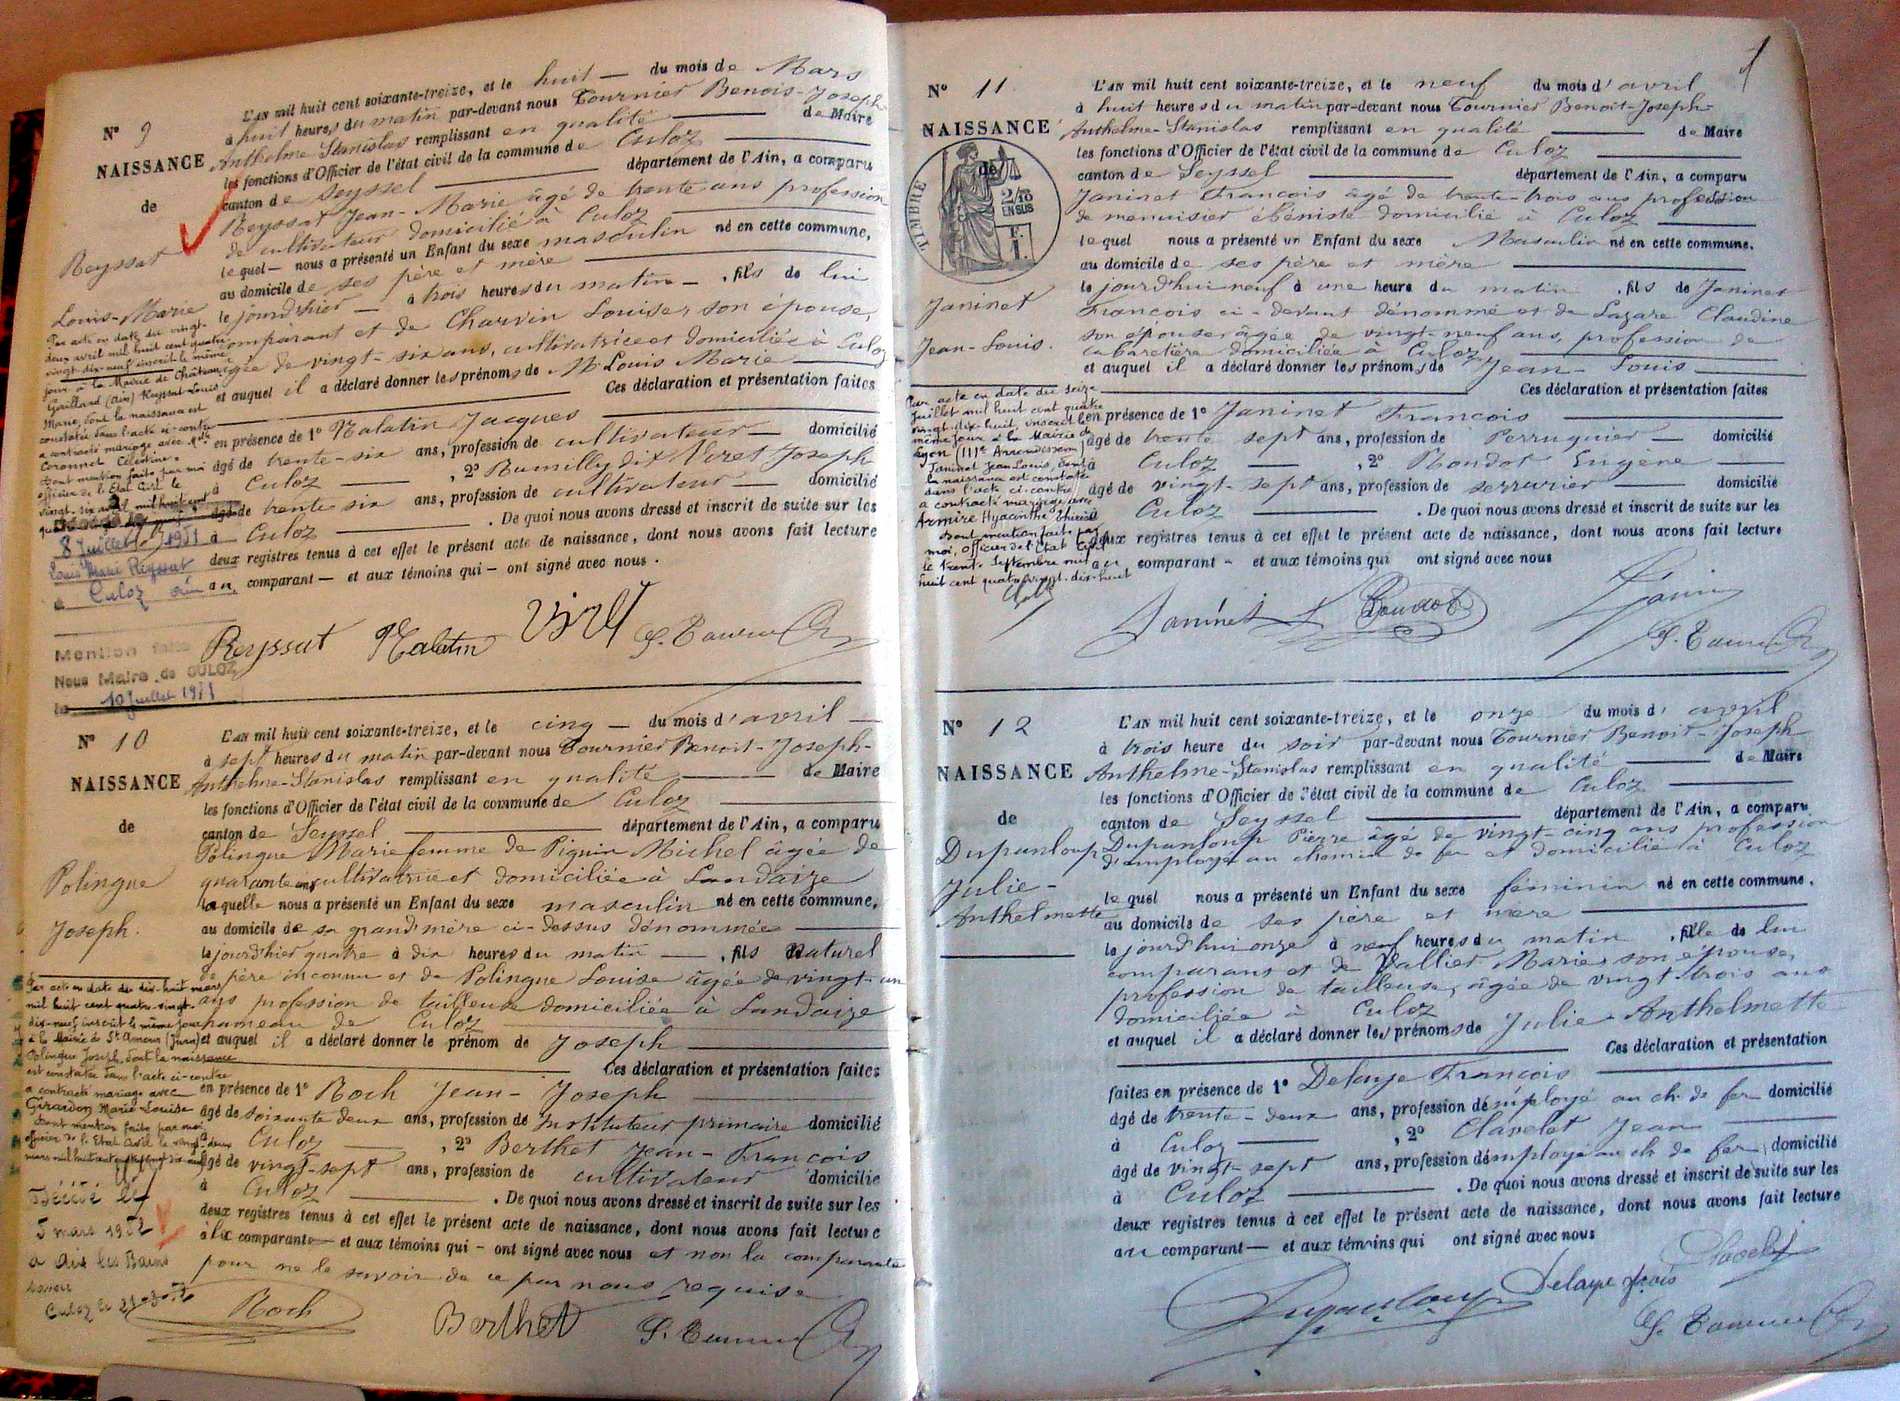 N° 9
NAISSANCE
de
Reyssat
Louis-Marie
L'AN mil huit cent soixante-treize, et le huit — du mois de Mars
à huit heures du matin par-devant nous Tournier Benoit-Joseph-
Anthelme Stanislas remplissant en qualité — de Maire
les fonctions d'Officier de l'état civil de la commune de Culoz
canton de Seyssel — département de l'Ain, a comparu
Reyssat Jean-Marie âgé de trente ans profession
de cultivateur domicilié à Culoz
lequel — nous a présenté un Enfant du sexe masculin né en cette commune,
au domicile de ses père et mère
le jourd'hier — à trois heures du matin — , fils de lui
comparant et de Charvin Louise, son épouse,
âgée de vingt-six ans, cultivatrice et domiciliée à Culoz
et auquel il a déclaré donner les prénoms de Louis Marie
Ces déclaration et présentation faites
en présence de 1° Jacques
âgé de trente-six ans, profession de cultivateur — domicilié
à Culoz — , 2° Rumilly dit Viret Joseph
âgé de trente six ans, profession de cultivateur — domicilié
à Culoz — . De quoi nous avons dressé et inscrit de suite sur les
deux registres tenus à cet effet le présent acte de naissance, dont nous avons fait lecture
au comparant — et aux témoins qui — ont signé avec nous.
Par acte en date du vingt-
deux avril mil huit cent quatre
vingt-dix-neuf inscrit le même
jour à la Mairie de Château
Gaillard (Ain) Reyssat Louis
Marie, dont la naissance est
constatée dans l'acte ci-contre
a contracté mariage avec
Coronnet Célestine.
Dont mention faite par moi
officier de l'Etat Civil le
vingt-six avril mil huit cent
8 Juillet 1951
Louis Marie Reyssat
à Culoz Ain
Mention faite
Nous Maire de CULOZ
le 10 Juillet 1951
Reyssat
Viret
N° 10
NAISSANCE
de
Polingue
Joseph.
L'AN mil huit cent soixante-treize, et le cinq — du mois d'avril —
à sept heures du matin par-devant nous Tournier Benoit-Joseph-
Anthelme-Stanislas remplissant en qualité — de Maire
les fonctions d'Officier de l'état civil de la commune de Culoz
canton de Seyssel — département de l'Ain, a comparu
Polingue Marie femme de Piguin Michel âgée de
quarante ans cultivatrice et domiciliée à Landaize
laquelle nous a présenté un Enfant du sexe masculin né en cette commune,
au domicile de sa grand'mère ci-dessus dénommée
le jourd'hier quatre à dix heures du matin — , fils naturel
de père inconnu et de Polingue Louise âgée de vingt-un
ans profession de tailleuse domiciliée à Landaize
hameau de Culoz
et auquel il a déclaré donner le prénom de Joseph
Ces déclaration et présentation faites
en présence de 1° Roch Jean-Joseph
âgé de soixante deux ans, profession de Instituteur primaire domicilié
à Culoz — , 2° Berthet Jean-François
âgé de vingt-sept ans, profession de cultivateur domicilié
à Culoz — . De quoi nous avons dressé et inscrit de suite sur les
deux registres tenus à cet effet le présent acte de naissance, dont nous avons fait lecture
à la comparante — et aux témoins qui — ont signé avec nous et non la comparante
pour ne le savoir de ce par nous requise
Par acte en date du dix-huit mars
mil huit cent quatre-vingt-
dix-neuf inscrit le même jour
à la Mairie de St Amour (Jura)
Polingue Joseph, dont la naissance
est constatée dans l'acte ci-contre
a contracté mariage avec
Girardon Marie-Louise
Dont mention faite par moi
officier de l'Etat Civil le vingt-deux
Décédé le
5 mars 1952
à Aix les Bains
Roch
Berthet
N° 11
NAISSANCE
de
TIMBRE
2/10
EN SUS
Janinet
Jean-Louis.
L'AN mil huit cent soixante-treize, et le neuf du mois d'avril
à huit heures du matin par-devant nous Tournier Benoit-Joseph-
Anthelme-Stanislas remplissant en qualité — de Maire
les fonctions d'Officier de l'état civil de la commune de Culoz
canton de Seyssel — département de l'Ain, a comparu
Janinet François âgé de trente-trois ans profession
de menuisier ébéniste domicilié à Culoz
lequel nous a présenté un Enfant du sexe Masculin né en cette commune,
au domicile de ses père et mère
le jourd'hui neuf à une heure du matin , fils de Janinet
François ci-devant dénommé et de Lazare Claudine
son épouse âgée de vingt-neuf ans, profession de
cabaretière domiciliée à Culoz
et auquel il a déclaré donner les prénoms de Jean-Louis
Ces déclaration et présentation faites
en présence de 1° Janinet François
âgé de trente sept ans, profession de Perruquier — domicilié
à Culoz — , 2° Rondot Eugène
âgé de vingt-sept ans, profession de serrurier — domicilié
à Culoz — . De quoi nous avons dressé et inscrit de suite sur les
deux registres tenus à cet effet le présent acte de naissance, dont nous avons fait lecture
au comparant — et aux témoins qui ont signé avec nous
Par acte en date du seize
Juillet mil huit cent quatre
vingt-dix-huit, inscrit le
même jour à la Mairie de
Lyon (IIIe Arrondissem)
Janinet Jean Louis, dont
la naissance est constatée
dans l'acte ci-contre
a contracté mariage avec
Hyacinthe
Dont mention faite par
moi, Officier de l'Etat Civil
le trente Septembre mil
huit cent quatre vingt-dix-huit
Janinet
N° 12
NAISSANCE
de
Dupanloup
Julie-
Anthelmette
L'AN mil huit cent soixante-treize, et le onze du mois d'avril
à trois heure du soir par-devant nous Tournier Benoit-Joseph
Anthelme-Stanislas remplissant en qualité — de Maire
les fonctions d'Officier de l'état civil de la commune de Culoz
canton de Seyssel — département de l'Ain, a comparu
Dupanloup Pierre âgé de vingt-cinq ans profession
d'employé au chemin de fer et domicilié à Culoz
lequel nous a présenté un Enfant du sexe féminin né en cette commune,
au domicile de ses père et mère
le jourd'hui onze à neuf heures du matin , fille de lui
comparant et de Vallier Marie son épouse,
profession de tailleuse, âgée de vingt trois ans
domiciliée à Culoz
et auquel il a déclaré donner les prénoms de Julie-Anthelmette
Ces déclaration et présentation
faites en présence de 1° Delaye François
âgé de trente-deux ans, profession d'employé au ch. de fer domicilié
à Culoz — , 2° Clavelet Jean
âgé de vingt-sept ans, profession d'employé au ch de fer, domicilié
à Culoz — . De quoi nous avons dressé et inscrit de suite sur les
deux registres tenus à cet effet le présent acte de naissance, dont nous avons fait lecture
au comparant — et aux témoins qui ont signé avec nous
Dupanloup
Delaye
Clavelet